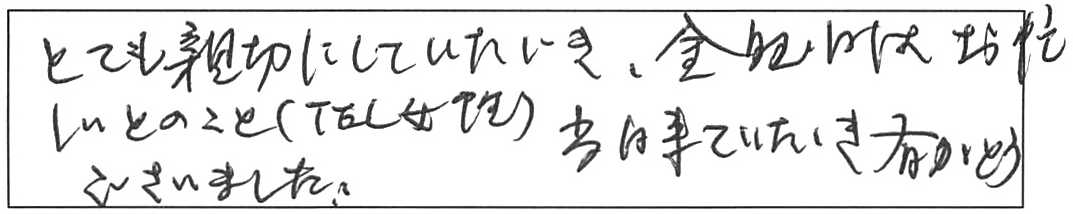 とても親切にしていただき、金曜日はお忙
しいとのこと(TEL女性) 当日来ていただき有がとう
ございました。